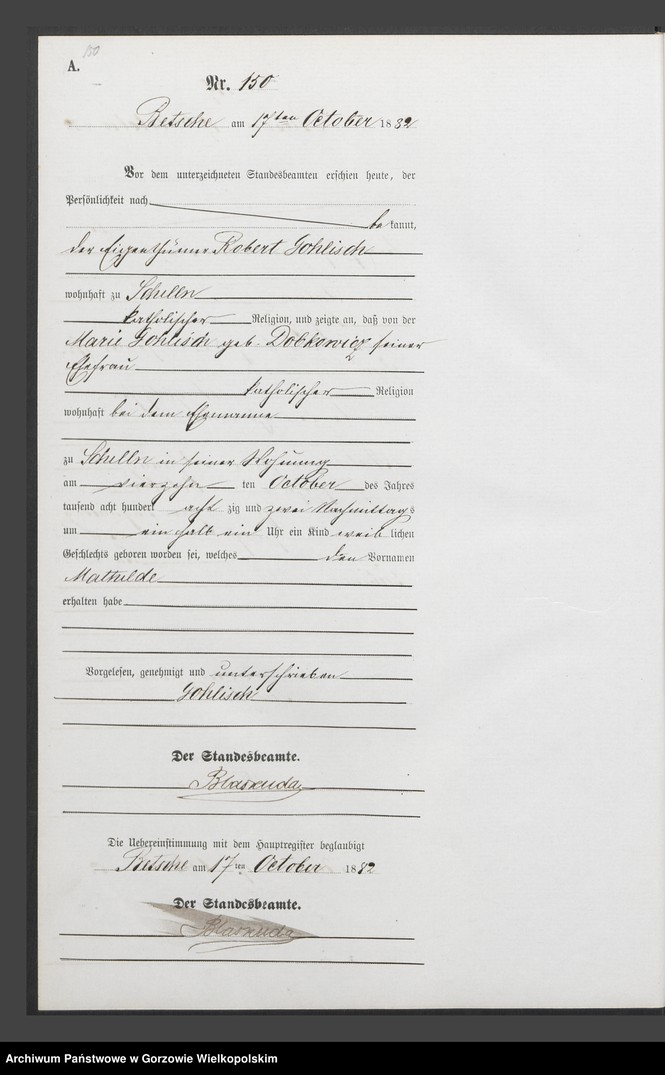 150
A.
Nr. 150
Betsche am 17ten October 1882
Vor dem unterzeichneten Standesbeamten erschien heute, der
Persönlichkeit nach
be kannt,
der Eigenthümer Robert Gohlisch
wohnhaft zu Schilln
katholischer Religion, und zeigte an, daß von der
Marie Gohlisch geb. Dobkowicz seiner
Ehefrau
katholischer Religion
wohnhaft bei dem Ehemanne
zu Schilln in seiner Wohnung
am vierzehn ten October des Jahres
tausend acht hundert acht zig und zwei Nachmittags
um ein halb ein Uhr ein Kind weib lichen
Geschlechts geboren worden sei, welches den Vornamen
Mathilde
erhalten habe
Vorgelesen, genehmigt und unterschrieben
Gohlisch
Der Standesbeamte.
Die Uebereinstimmung mit dem Hauptregister beglaubigt
Betsche am 17ten October 1882
Der Standesbeamte.
Archiwum Państwowe w Gorzowie Wielkopolskim